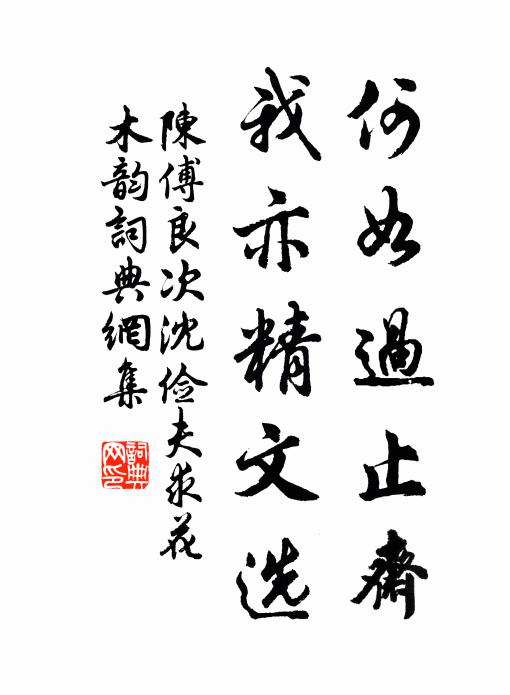 何如過止齋
我亦精文選
陳傅良次沈儉夫求花
木韵詞典網集
詞典網印